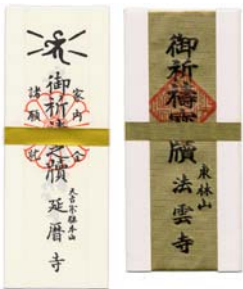 家内安全
御祈祷之牘
諸願成就
天台宗総本山
延暦寺
御祈祷寳牘
東林山
法雲寺